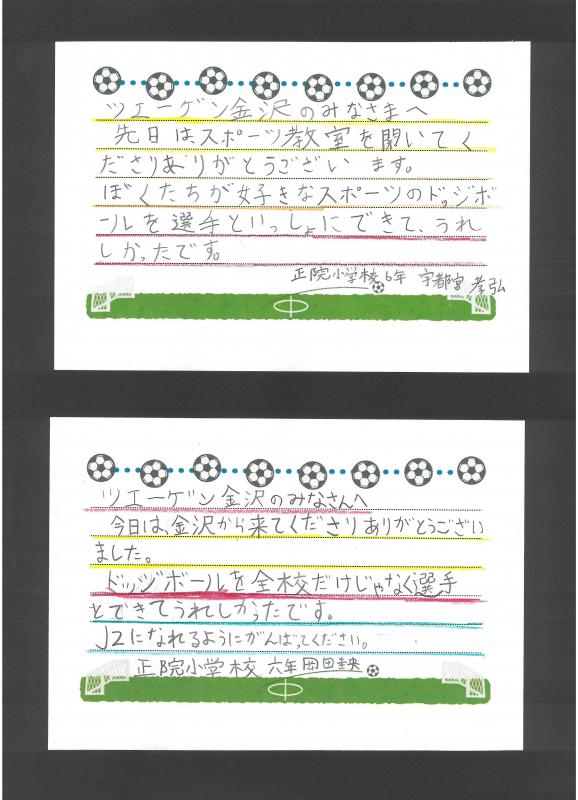 ツエーゲン金沢のみなさまへ
先日は、スポーツ教室を開いてく
ださりありがとうござい ます。
ぼくたちが好きなスポーツのドッジボ
ールを選手といっしょにできて、うれ
しかったです。
正院小学校6年 宇都宮 孝弘
ツエーゲン金沢のみなさんへ
今日は、金沢から来てくださりありがとうござい
ました。
ドッジボールを全校だけじゃなく選手
とできてうれしかったです。
J2になれるようにがんばってください。
正院小学校 六年 岡田